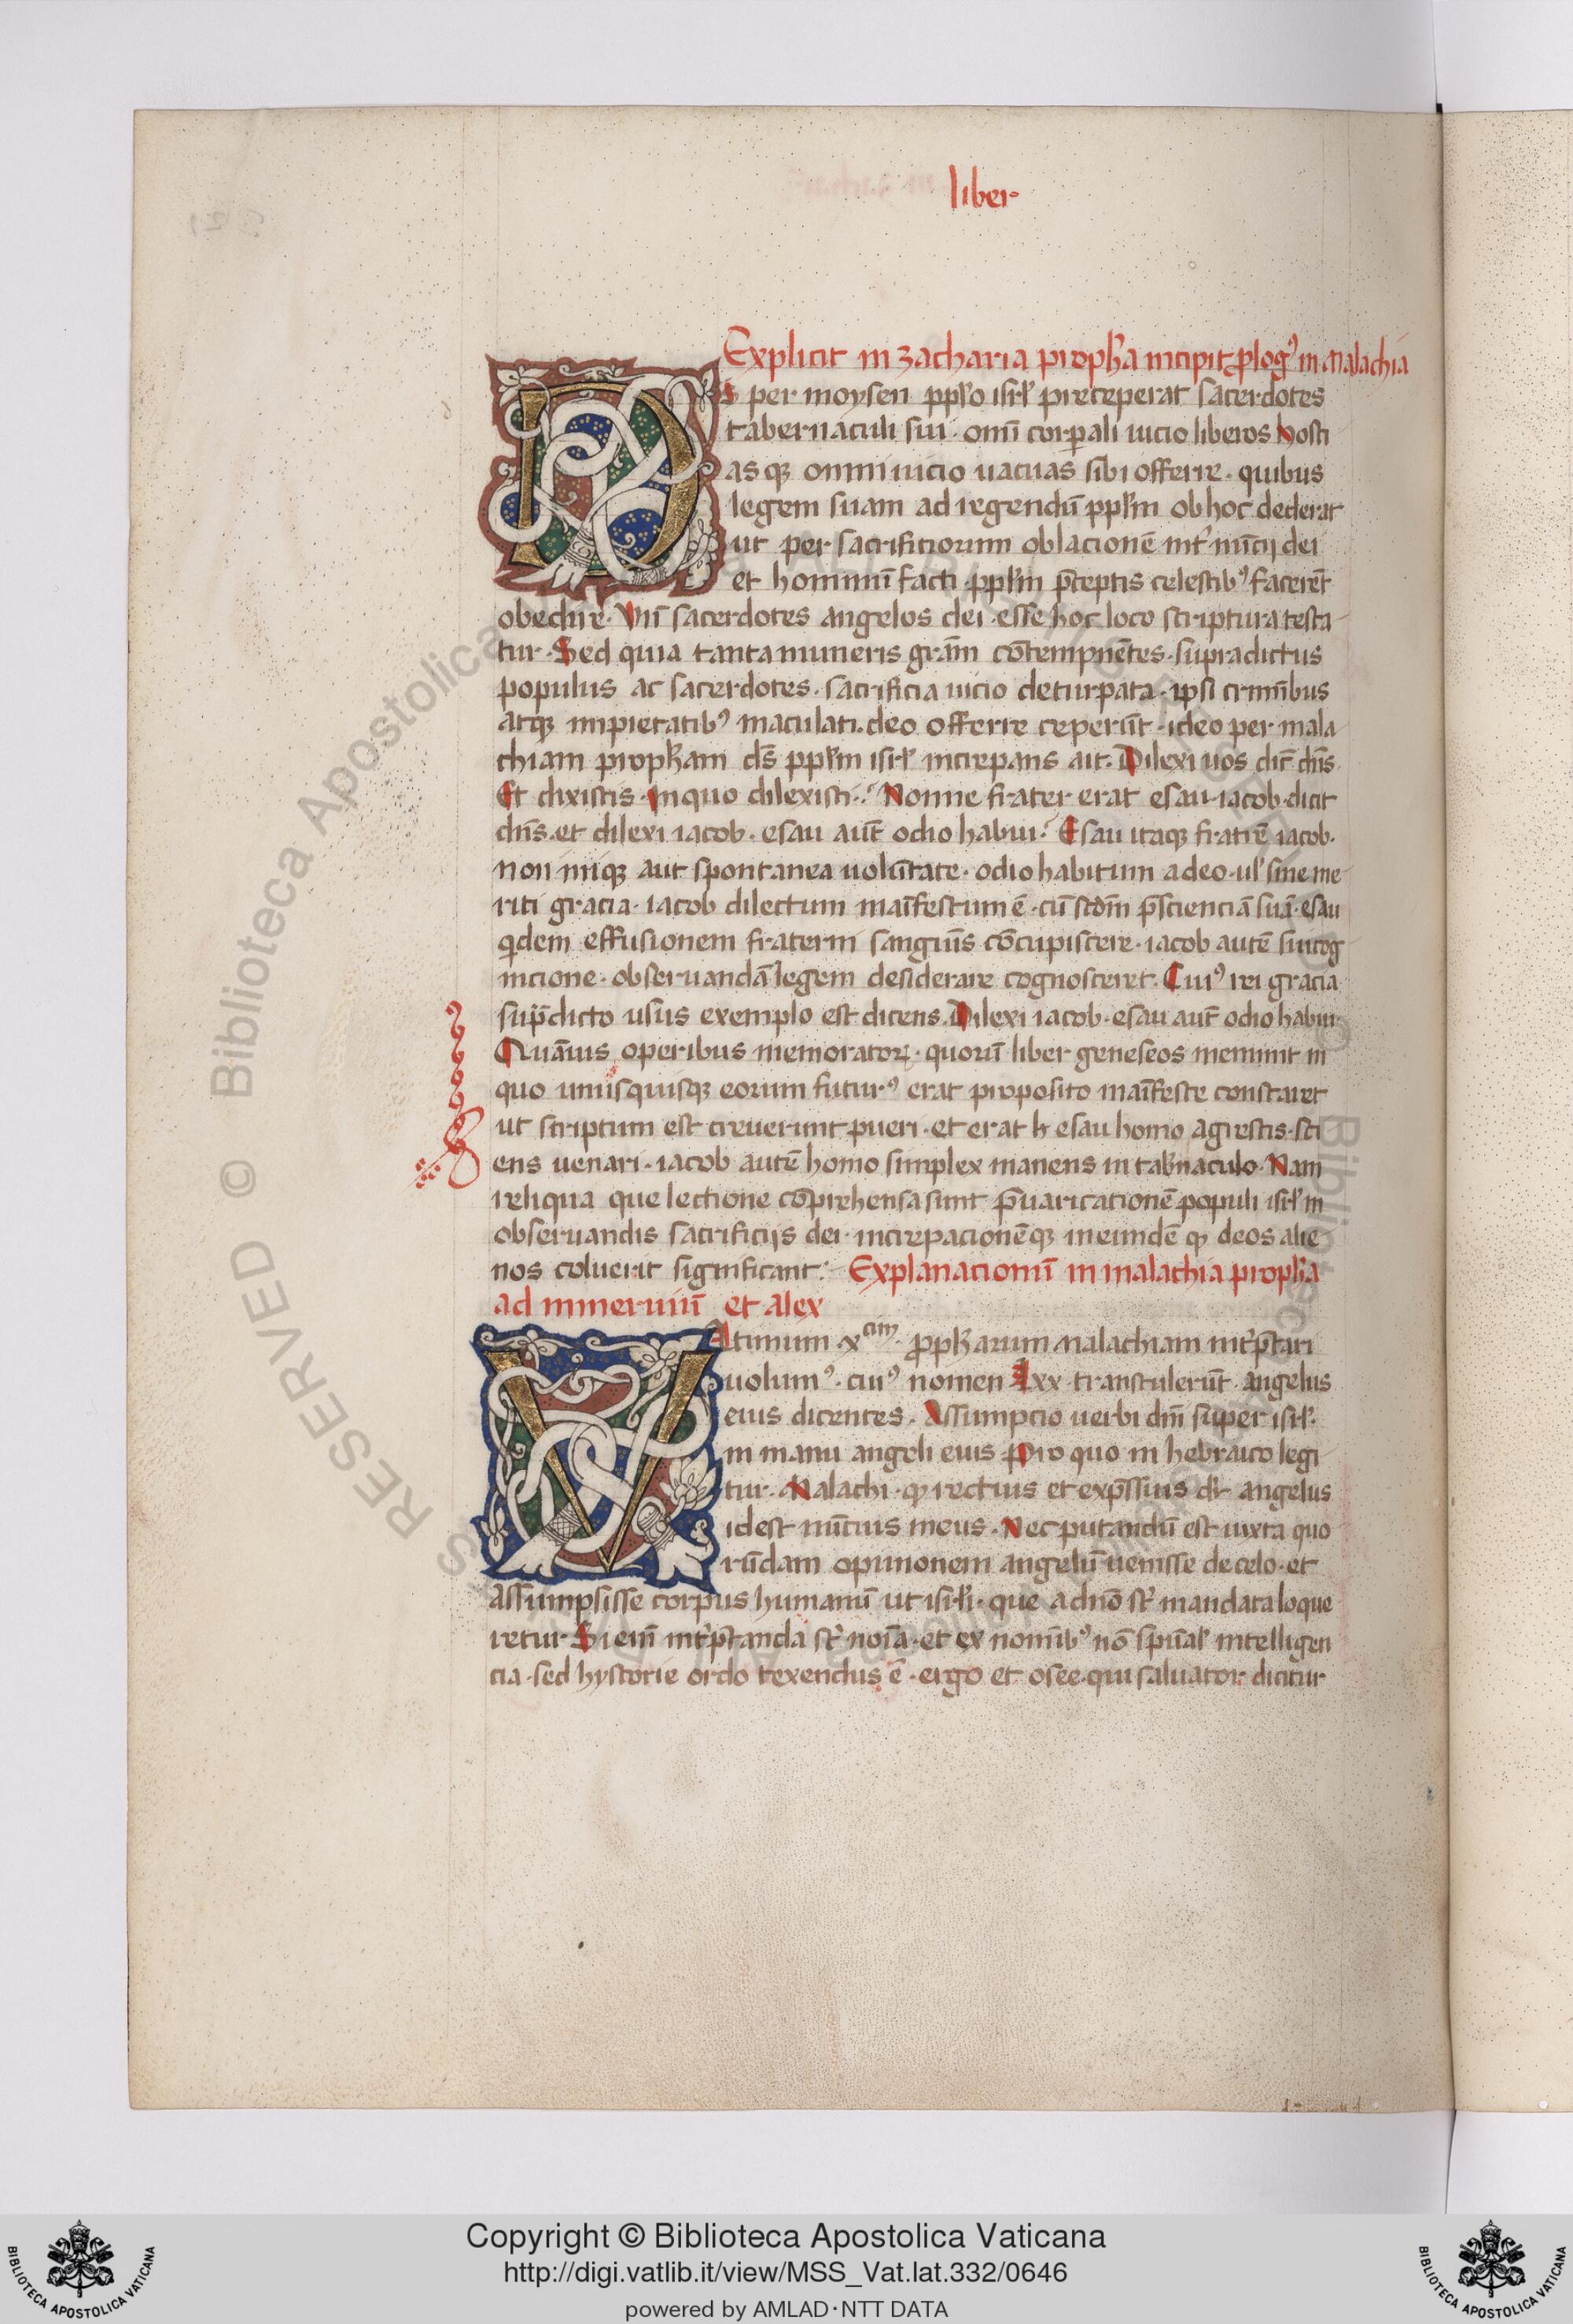 liber
Explicit in zacharia proph̄a incipit p̱log᷒ in Malachia
DS per moysen pp̄lo isrl̄ preceperat sacerdotes
tabernaculi sui · om̄i corꝑali uicio liberos hosti
as qꝫ omni uicio uacuas sibi offerre · quibus
legem suam ad regendū ppl̄m ob hoc dederat
ut per sacrificiorum oblacionē int̄ nūcij dei
et hominū facti · ppl̄m p̄ceptis celestib᷒ facerēt
obedire · Vn̄ sacerdotes angelos dei · esse hoc loco scriptura testa
tur · Sed quia tanta muneris grām cōtempnētes · supradictus
populus ac sacerdotes · sacrificia uicio deturpata · ipsi crimībus
atqꝫ impietatib᷒ maculati · deo offerre ceperūt · ideo per mala
chiam proph̄am ds̄ ppl̄m isrl̄ increpans ait · Dilexi uos dic̄ dn̄s
Et dixistis · In quo dilexisti · Nonne frater erat esau iacob · dicit
dn̄s · et dilexi iacob · esau aūt odio habui · Esau itaqꝫ fratrē iacob ·
non iniqꝫ aut spontanea uolūtate · odio habitum a deo · ul̄ sine me
riti gracia · iacob dilectum maīfestum ē · cū scdm̄ p̄scienciā suā · esau
qͥdem effusionem fraterni sanguīs cōcupiscere · iacob autē sui cog
nicione · obseruandā legem desiderare cognosceret · Cui᷒ rei gracia
sup̄dicto usus exemplo est dicens · Dilexi iacob · esau aūt odio habui
Quāuis operibus memoratoꝝ · quorū liber geneseos meminit in
quo unusquisqꝫ eorum futur᷒ erat proposito maīfeste constaret
ut scriptum est creuerunt pueri · et erat h esau homo agrestis · sci
ens uenari · iacob autē homo simplex manens in tab̄naculo · Nam
reliqua que lectione cōprehensa sunt p̄uaricationē populi isrl̄ in
obseruandis sacrificijs dei · increpacionēqꝫ in eundē qꝫ deos alie
nos coluerit significant · Explanacionū in malachia proph̄a
ad mineruiū et alex
VLtimum · xcim · p̱ph̄arum Malachiam int̄p̄tari
uolum᷒ · cui᷒ nomen lxx · transtulerūt · angelus
eius dicentes · Assumpcio uerbi dn̄i super isrl̄ ·
in manu angeli eius · Pro quo in hebraico legi
tur · Malachi · qꝫ rectius et exp̄ssius dr̄ angelus
idest nūcius meus · Nec putandū est iuxta quo
rūdam opinionem angelū uenisse de celo · et
assumpsisse corpus humanū ut isrl̄i · que a dn̄o st̄ mandata loque
retur · Si enī int̄p̄tanda st̄ noīa · et ex nomīb᷒ nō spūal̄ intelligen
cia · sed hystorie ordo texendus ē · ergo et osee · qui saluator dicitur
Copyright © Biblioteca Apostolica Vaticana
http://digi.vatlib.it/view/MSS_Vat.lat.332/0646
powered by AMLAD·NTT DATA
BIBLIOTECA APOSTOLICA VATICANA
BIBLIOTECA APOSTOLICA VATICANA